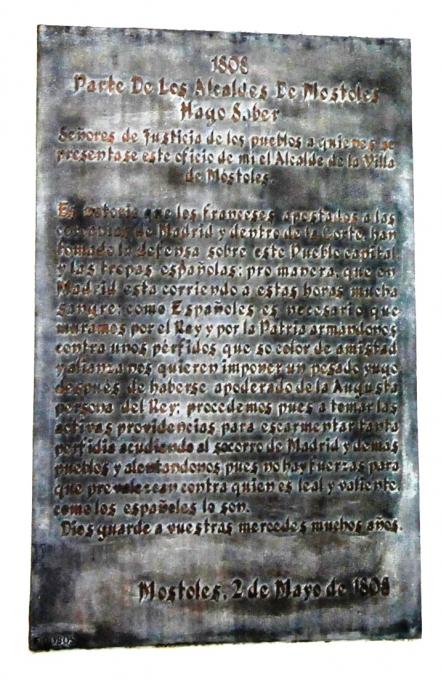 1808
Parte De Los Alcaldes De Mostoles
Hago Saber
Señores de Justicia de los pueblos a quienes se
presentase este oficio de mi el Alcalde de la Villa
de Mostoles.
Es notorio que les franceses apostados a las
cercanias de Madrid y dentro de la Corte, han
tomado la defensa sobre este Pueblo capital
y las tropas españolas; pro manera, que en
Madrid esta corriendo a estas horas mucha
sangre; como Españoles es necesario que
muramos por el Rey y por la Patria armandonos
contra unos pérfidos que so color de amistad
y alianza nos quieren imponer un pesado yugo
después de haberse apoderado de la Augusta
persona del Rey; procedemos pues a tomar las
activas providencias para escarmentar tanta
perfidia acudiendo al socorro de Madrid y demas
pueblos y alentandonos pues no hay fuerzas para
que prevalezcan contra quien es leal y valiente,
como los españoles lo son.
Dios guarde a vuestras mercedes muchos años.
Mostoles, 2 de Mayo de 1808